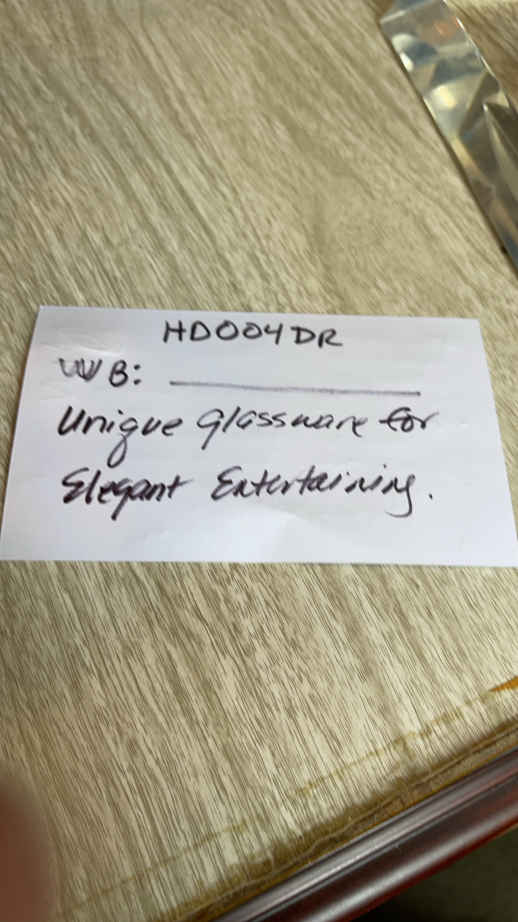 HD004DR
WB: ____________
Unique Glassware for
Elegant Entertaining.